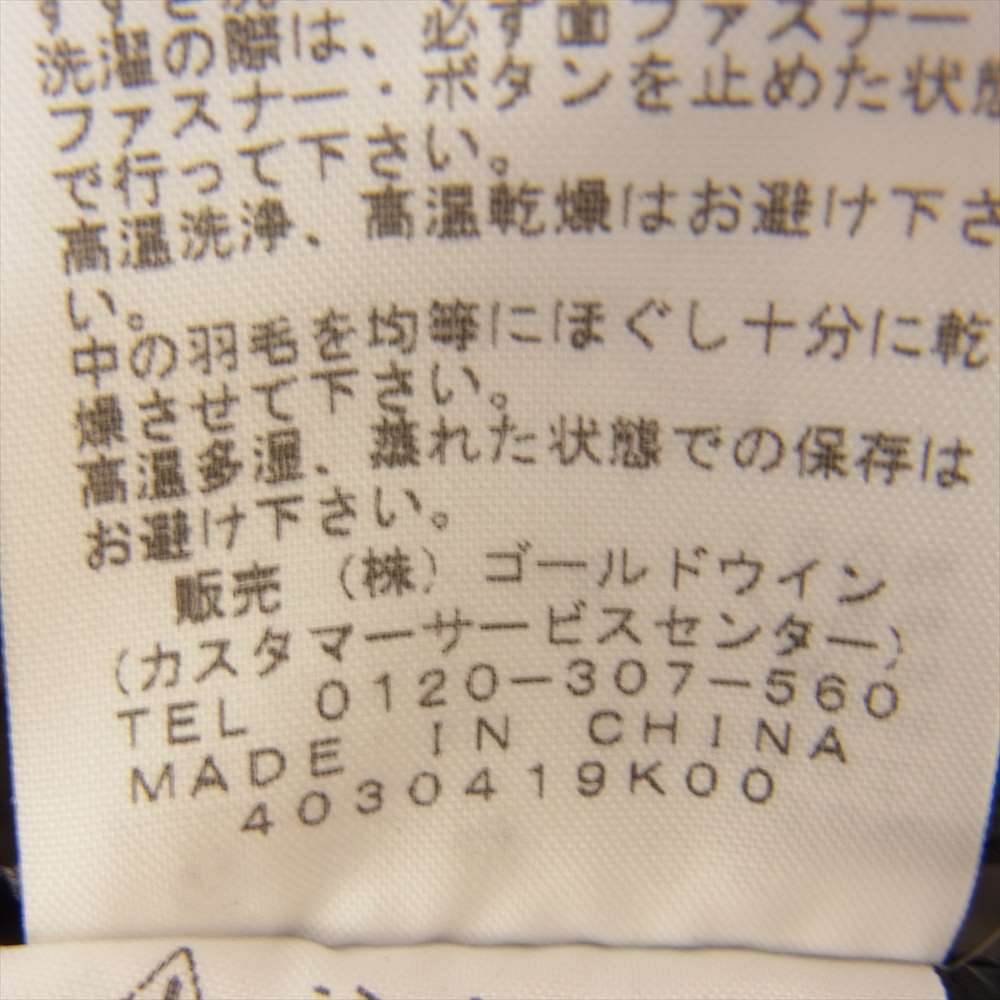 洗濯の際は、必ず面ファスナー・
ファスナー・ボタンを止めた状態
で行って下さい。
高温洗浄、高温乾燥はお避け下さ
い。
中の羽毛を均等にほぐし十分に乾
燥させて下さい。
高温多湿、蒸れた状態での保存は
お避け下さい。
販売 (株) ゴールドウイン
(カスタマーサービスセンター)
TEL 0120-307-560
MADE IN CHINA
4030419K00